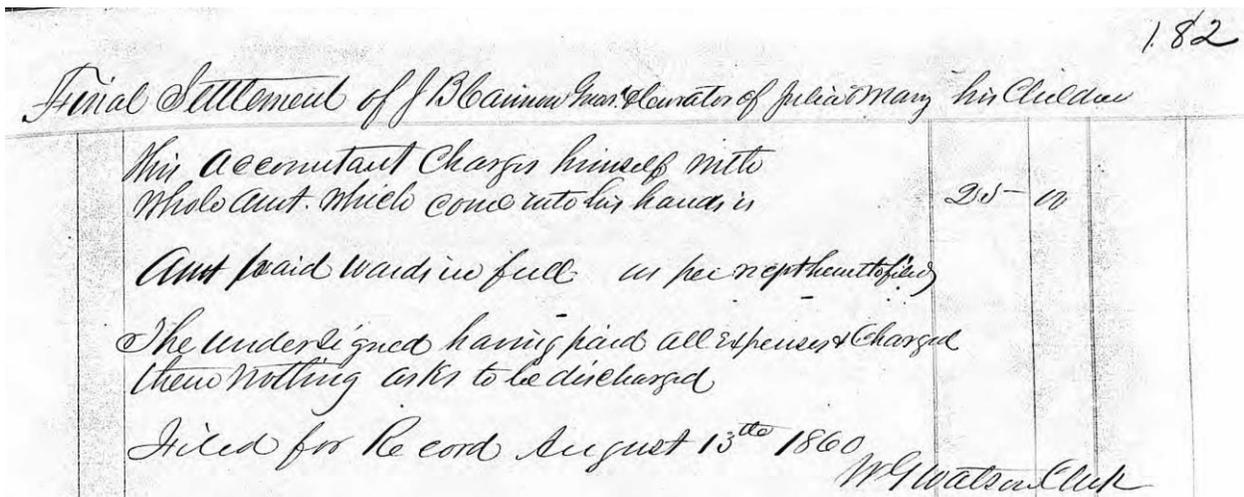 182
Final Settlement of J B Cannon Guar. & Curator of Julia & Mary his Children
This accountant Charges himself with
Whole Amt. which come into his hands is 25 00
Amt paid wards in full as per recpt hereto filed
The undersigned having paid all expenses & Charged
them nothing asks to be discharged
Filed for Record August 13th 1860
W G Watson Clerk